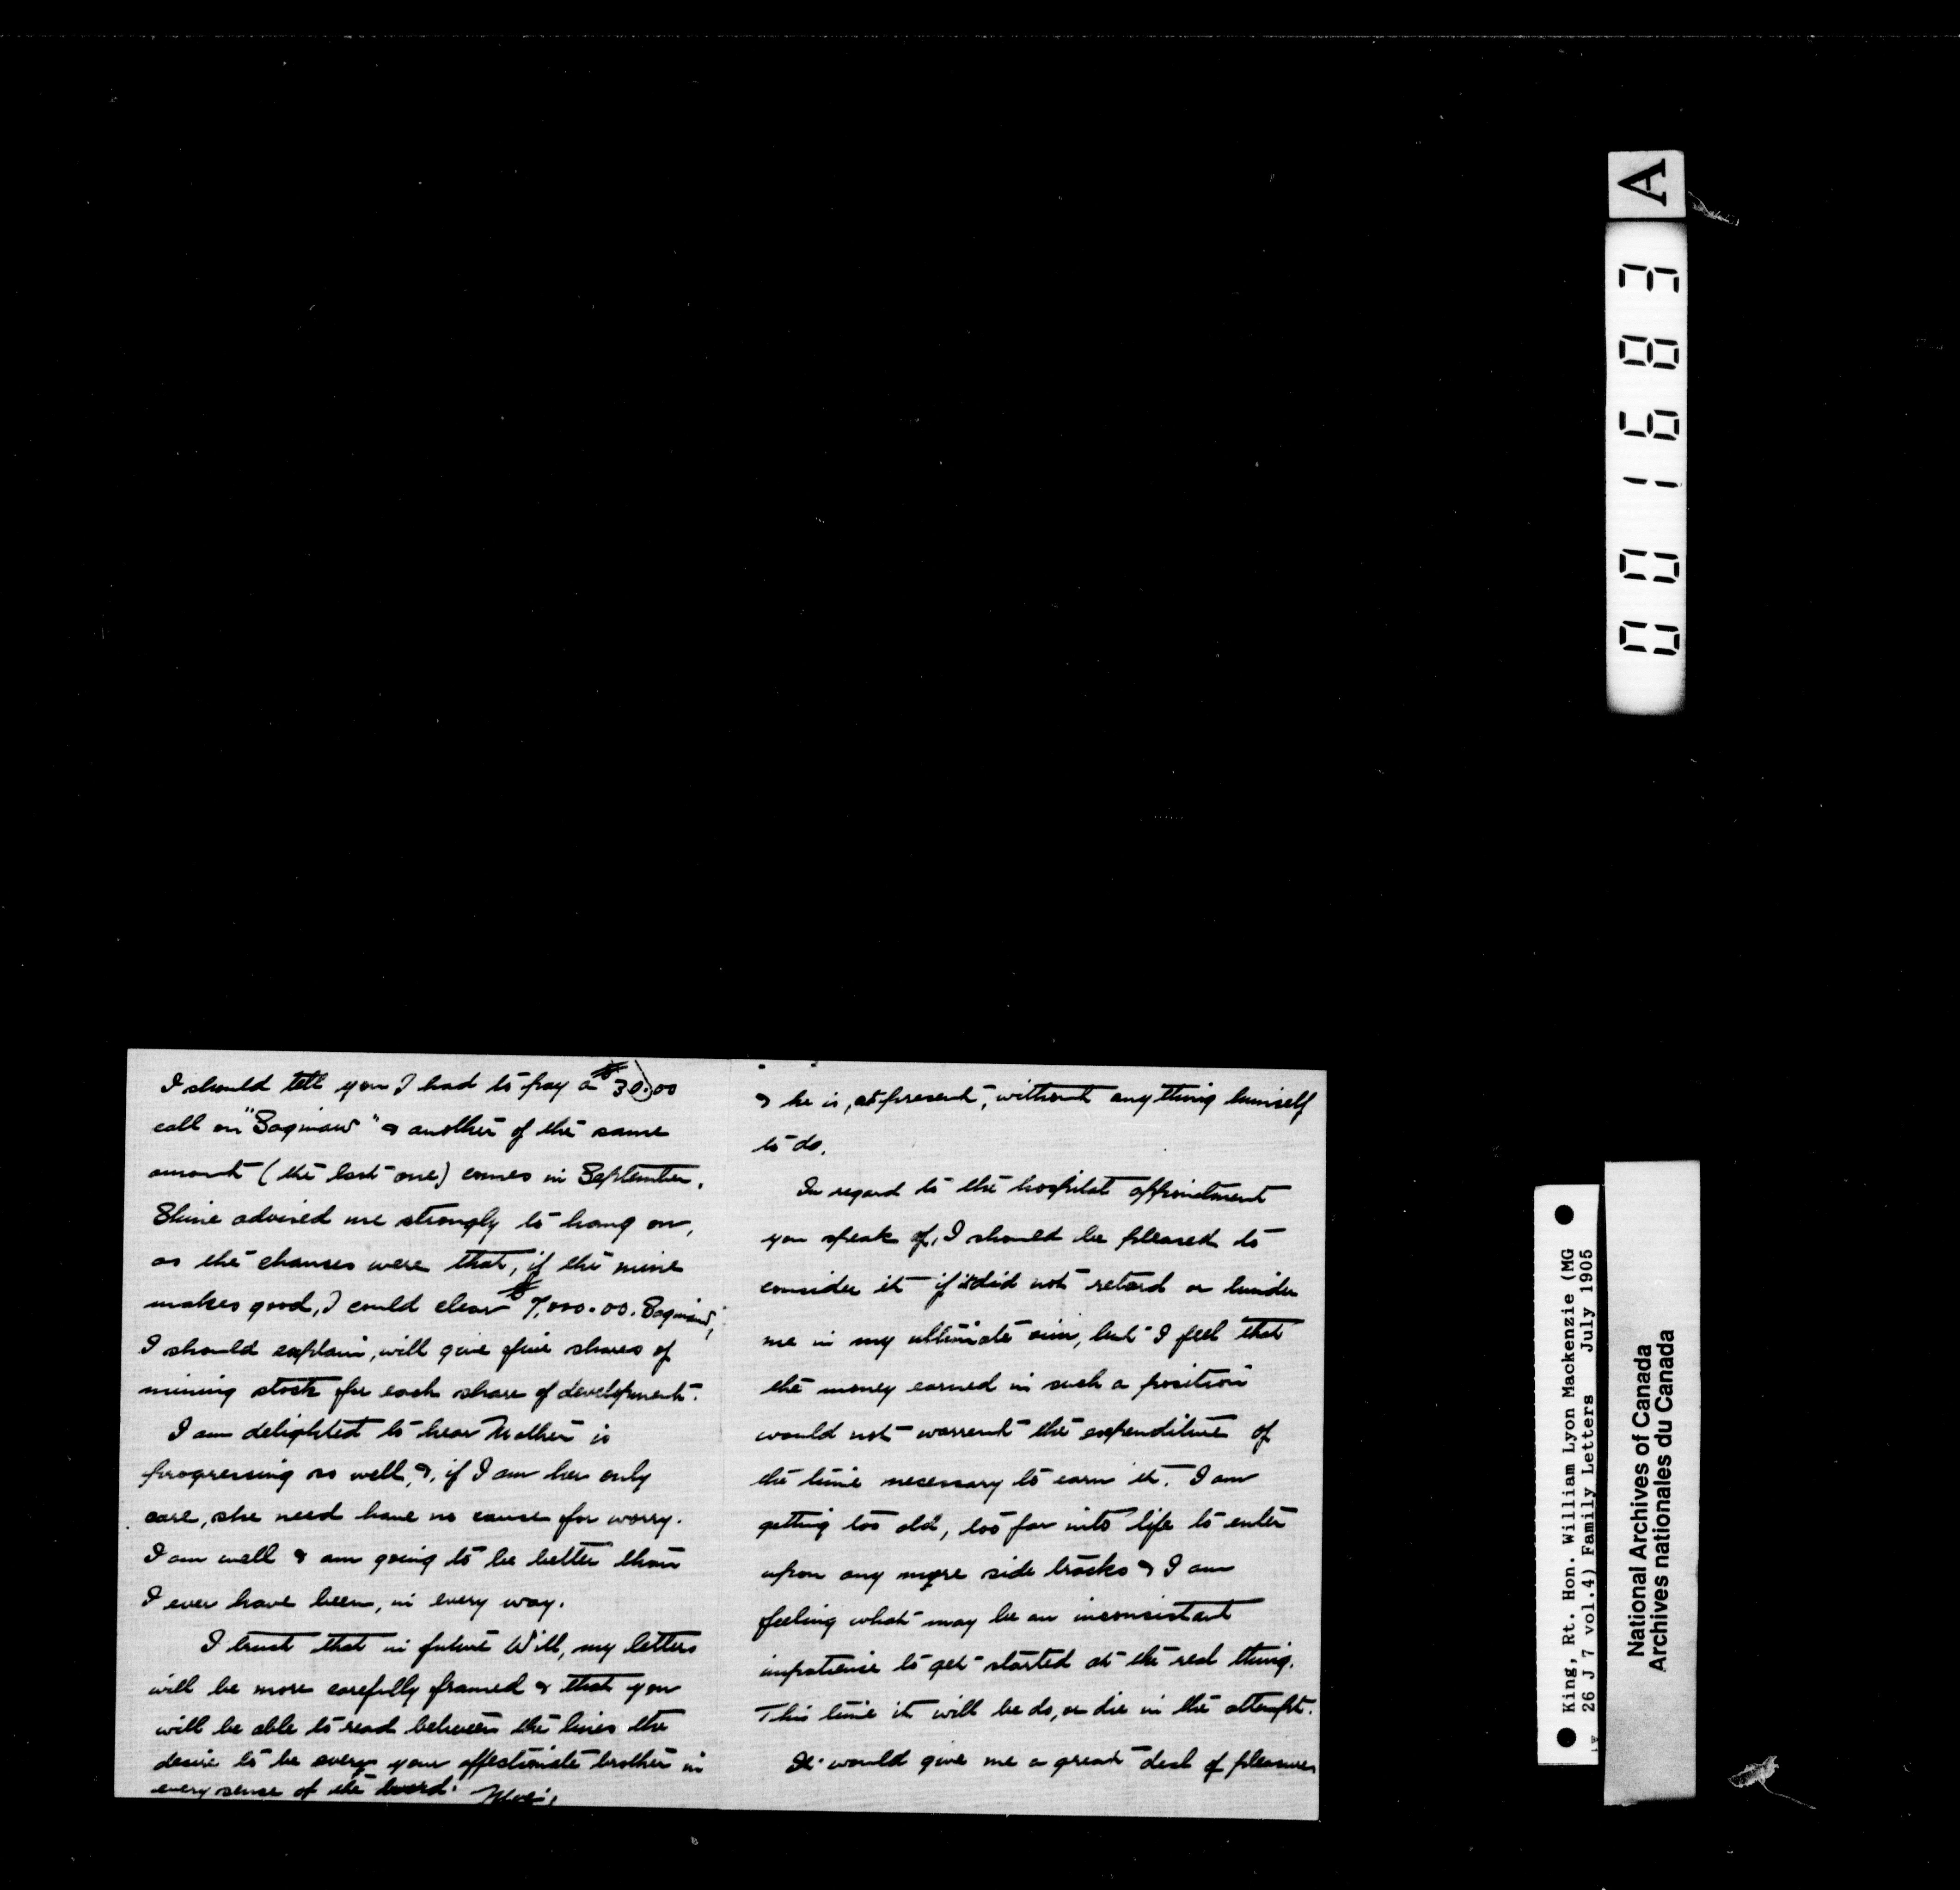 I should tell you I had to pay a $30.00
call on "Saginaw" & another of the same
amount (the last one) comes in September.
Shine advised me strongly to hang on,
as the chances were that, if the mine
makes good, I could clear $7,000.00. Saginaw,
I should explain, will give five shares of
mining stock for each share of development.
I am delighted to hear Mother is
progressing so well, &, if I am her only
care, she need have no cause for worry.
I am well & am going to be better than
I ever have been, in every way.
I trust that in future Will, my letters
will be more carefully framed & that you
will be able to read between the lines the
desire to be every your affectionate brother in
every sense of the word. Max.
& he is, at present, without any thing himself
to do.
In regard to the hospital appointment
you speak of, I should be pleased to
consider it if it did not retard or hinder
me in my ultimate aim, but I feel that
the money earned in such a position
would not warrent the expenditure of
the time necessary to earn it. I am
getting too old, too far into life to enter
upon any more side tracks & I am
feeling what may be an inconsistant
impatience to get started at the real thing.
This time it will be do, or die in the attempt.
It would give me a great deal of pleasure
A
001683
King, Rt. Hon. William Lyon Mackenzie (MG
26 J 7 vol.4) Family Letters July 1905
National Archives of Canada
Archives nationales du Canada